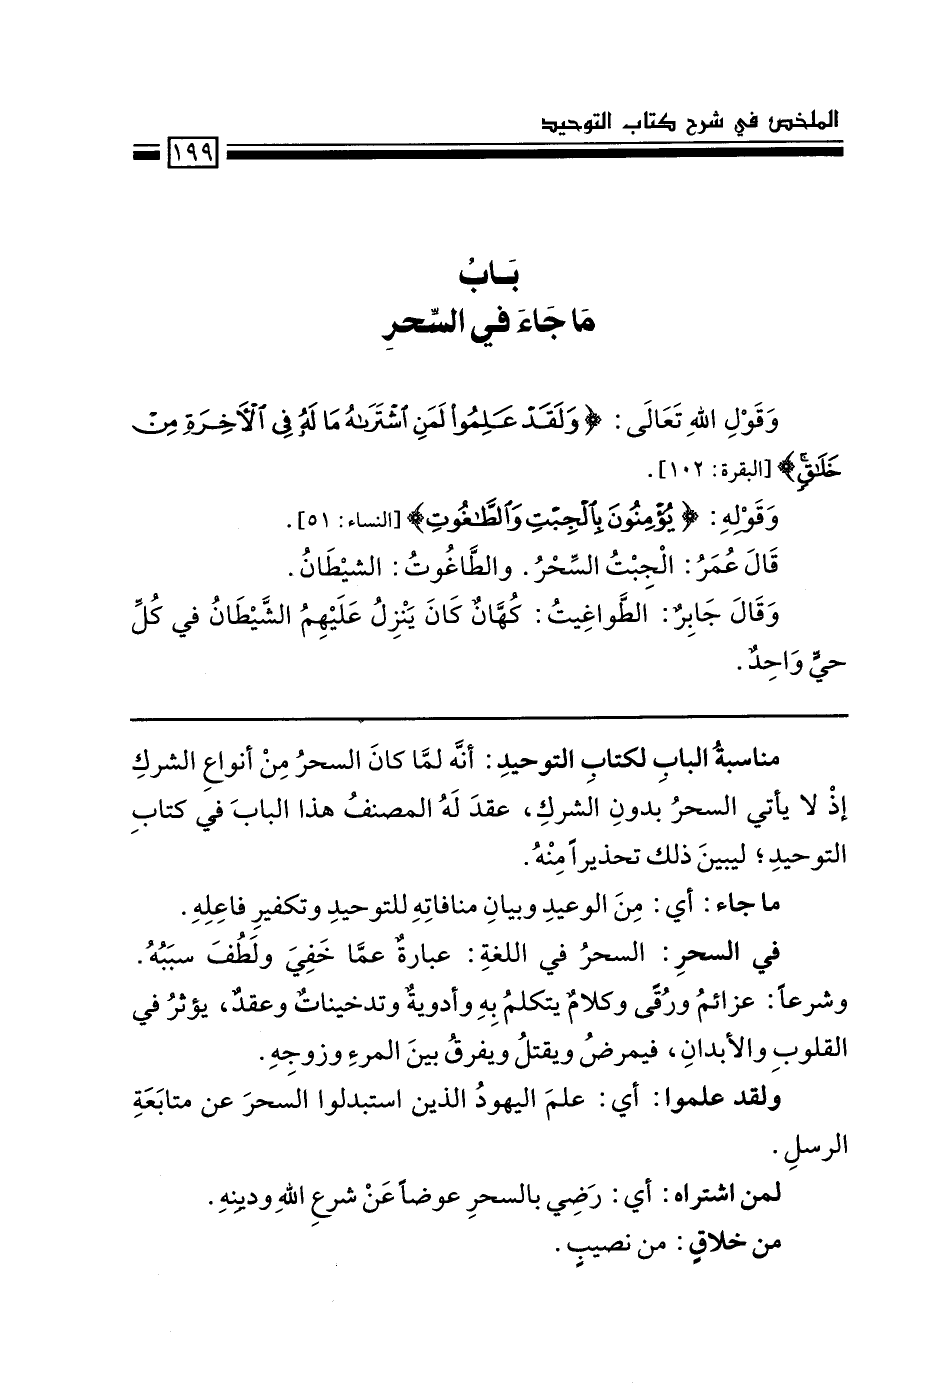 الملخص في شرح كتاب التوحيد
١٩٩
بَـابُ
مَا جَاءَ في السِّحرِ
وَقَوْلِ اللهِ تَعَالَى: ﴿وَلَقَدْ عَلِمُواْ لَمَنِ ٱشْتَرَىٰهُ مَا لَهُۥ فِى ٱلْأَخِرَةِ مِنْ
خَلَٰقٍۚ﴾ [البقرة: ١٠٢].
وَقَوْلِهِ: ﴿يُؤْمِنُونَ بِٱلْجِبْتِ وَٱلطَّٰغُوتِ﴾ [النساء: ٥١].
قَالَ عُمَرُ: الْجِبْتُ السِّحْرُ. والطَّاغُوتُ: الشيْطَانُ.
وَقَالَ جَابِرٌ: الطَّواغِيتُ: كُهَّانٌ كَانَ يَنْزِلُ عَلَيْهِمُ الشَّيْطَانُ في كُلِّ
حيٍّ وَاحِدٌ.
مناسبةُ البابِ لكتابِ التوحيدِ: أنَّه لمَّا كانَ السحرُ مِنْ أنواعِ الشركِ
إذْ لا يأتي السحرُ بدونِ الشركِ، عقدَ لَهُ المصنفُ هذا البابَ في كتابِ
التوحيدِ؛ ليبينَ ذلك تحذيراً مِنْهُ.
ما جاء: أي: مِنَ الوعيدِ وبيانِ منافاتِهِ للتوحيدِ وتكفيرِ فاعِلِهِ.
في السحرِ: السحرُ في اللغةِ: عبارةٌ عمَّا خَفِيَ ولَطُفَ سبَبُهُ.
وشرعاً: عزائمُ ورُقًى وكلامٌ يتكلمُ بِهِ وأدويةٌ وتدخيناتٌ وعقدٌ، يؤثرُ في
القلوبِ والأبدانِ، فيمرضُ ويقتلُ ويفرقُ بينَ المرءِ وزوجِهِ.
ولقد علموا: أي: علمَ اليهودُ الذين استبدلوا السحرَ عن متابَعَةِ
الرسلِ.
لمن اشتراه: أي: رَضِي بالسحرِ عوضاً عَنْ شرعِ اللهِ ودينِهِ.
من خلاقٍ: من نصيبٍ.